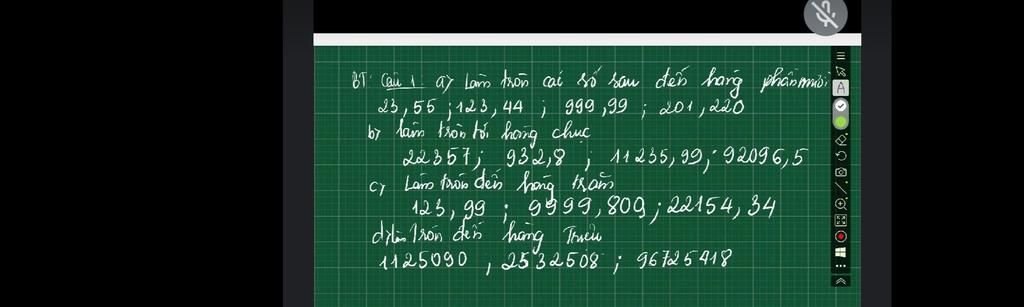 BT: Câu 1: a) Làm tròn các số sau đến hàng phần mười
23,55 ; 123,44 ; 999,99 ; 201,220
b) làm tròn tới hàng chục
22357; 932,8 ; 11235,99; 92096,5
c) Làm tròn đến hàng trăm
123,99 ; 9999,809 ; 22154,34
d) làm tròn đến hàng Triệu
1125090 , 2532508 ; 96725418